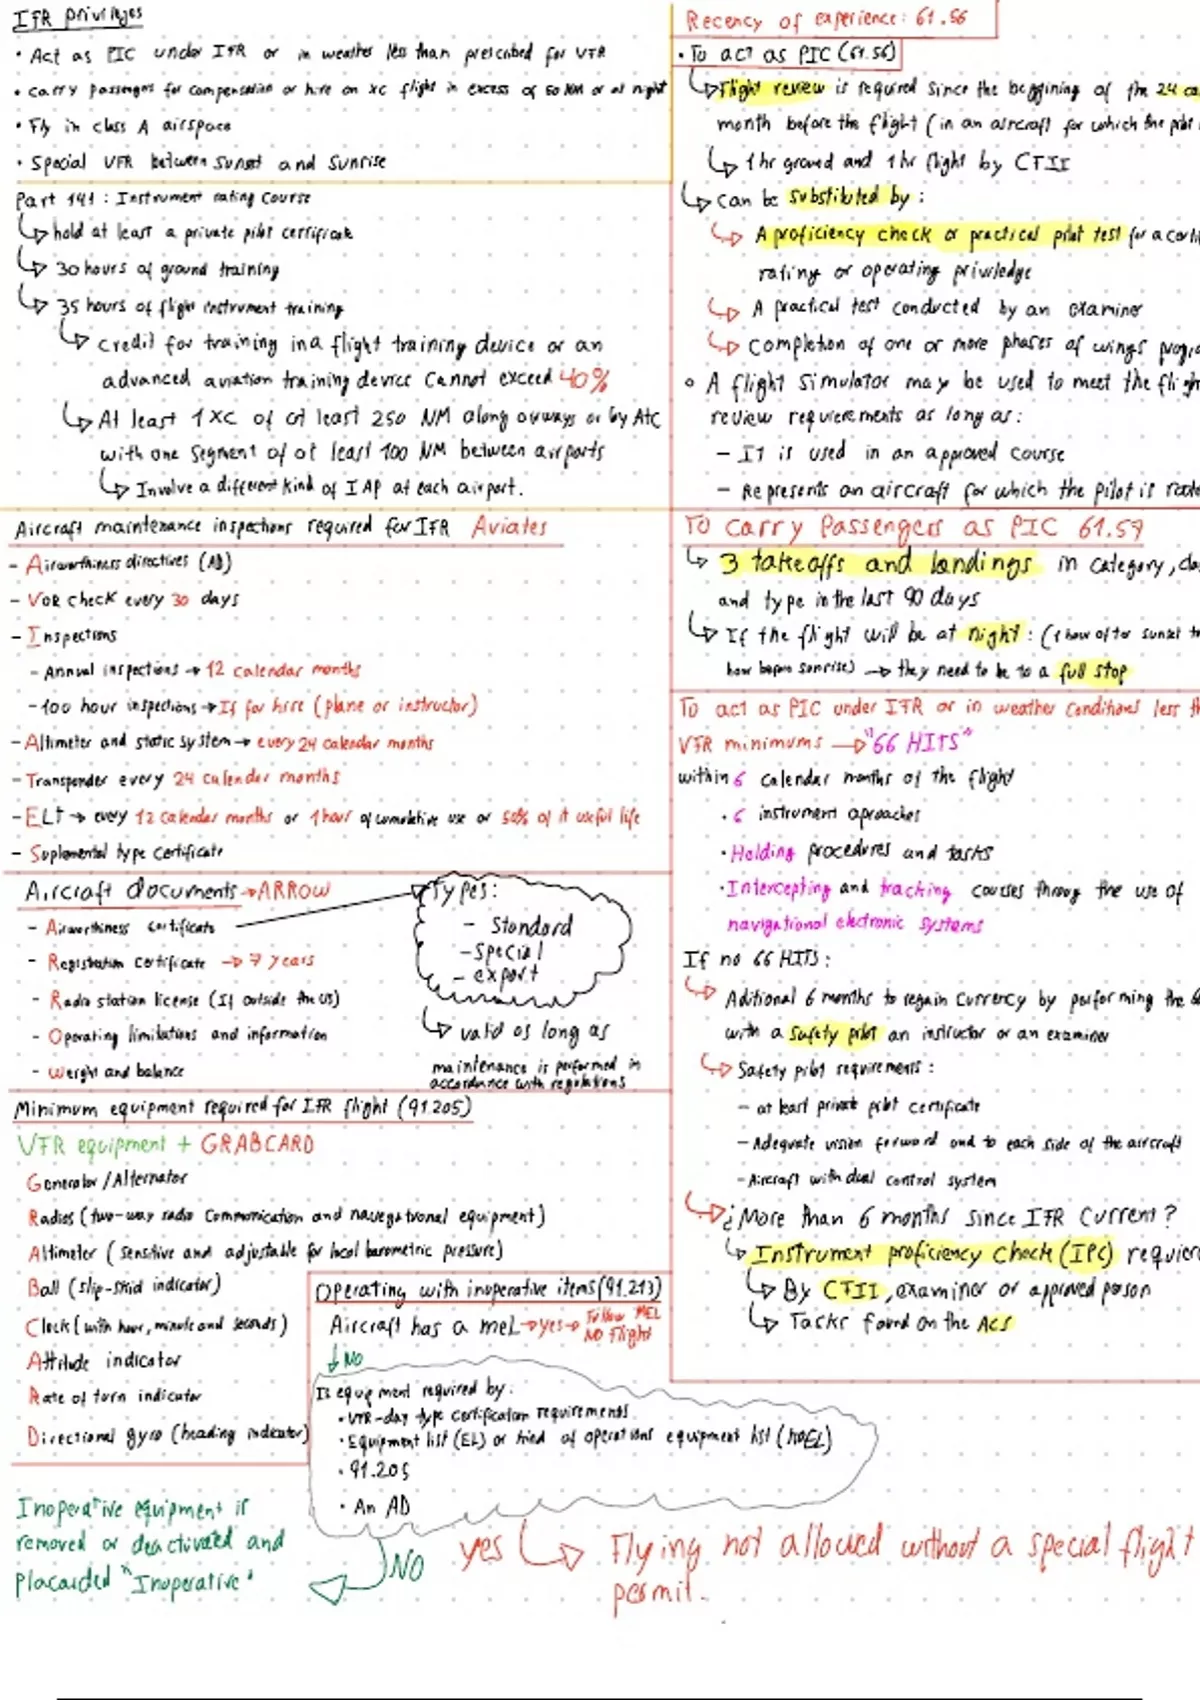 IFR privileges
• Act as PIC under IFR or in weather less than prescribed for VFR
• carry passenges for compensation or hire on xc flight in excess of 50 NM or at night
• Fly in class A airspace
• Special VFR between sunset and sunrise
Part 141 : Instrument rating course
hold at least a private pilot certificate
30 hours of ground training
35 hours of flight instrument training
credit for training in a flight training device or an
advanced aviation training device cannot exceed 40%
At least 1 XC of at least 250 NM along airways or by ATC
with one segment of at least 100 NM between airports
Involve a different kind of IAP at each airport.
Aircraft maintenance inspections required for IFR Aviates
- Airworthiness directives (AD)
- VOR check every 30 days
- Inspections
- Annual inspections → 12 calendar months
- 100 hour inspections → If for hire (plane or instructor)
- Altimeter and static system → every 24 calendar months
- Transponder every 24 calendar months
- ELT → every 12 calendar months or 1 hour of cumulative use or 50% of it useful life
- Suplemental type certificate
Aircraft documents → ARROW
- Airworthiness certificate
- Registration certificate → 7 years
- Radio station license (If outside the US)
- Operating limitations and information
- Weight and balance
Types:
- Standard
- Special
- export
valid as long as
maintenance is performed in
accordance with regulations
Minimum equipment required for IFR flight (91.205)
VFR equipment + GRABCARD
Generator / Alternator
Radios (two-way radio communication and navegational equipment)
Altimeter (sensitive and adjustable for local barometric pressure)
Ball (slip-skid indicator)
Clock (with hour, minute and seconds)
Attitude indicator
Rate of turn indicator
Directional gyro (heading indicator)
Operating with inoperative items (91.213)
Aircraft has a mel → yes → Follow MEL
NO Flight
↓ NO
Is equipment required by:
• VFR-day type certification requirements
• Equipment list (EL) or kind of operations equipment list (KOEL)
• 91.205
• An AD
Inoperative equipment is
removed or deactivated and
placarded "Inoperative"
NO
yes
Flying not allowed without a special flight
permit.
Recency of experience: 61.56
• To act as PIC (61.56)
Flight review is required since the beggining of the 24 ca
month before the flight (in an aircraft for which the pilot
1 hr ground and 1 hr flight by CFII
can be substituted by :
A proficiency check or practical pilot test for a certi
rating or operating priviledge
A practical test conducted by an examiner
Completion of one or more phases of wings progra
• A flight simulator may be used to meet the fligh
review requierements as long as :
- It is used in an approved course
- Represents an aircraft for which the pilot is rate
To carry Passengers as PIC 61.57
3 takeoffs and landings in category, cla
and type in the last 90 days
If the flight will be at night : (1 hour after sunset to
hour before sunrise) → they need to be to a full stop
To act as PIC under IFR or in weather conditions less th
VFR minimums → "66 HITS"
within 6 calendar months of the flight
• 6 instrument aproaches
• Holding procedures and tasks
• Intercepting and tracking courses throug the use of
navigational electronic systems
If no 66 HITS :
Aditional 6 months to regain currency by performing the 6
with a safety pilot an instructor or an examiner
Safety pilot requirements :
- at least private pilot certificate
- Adequate vision forward and to each side of the aircraft
- Aircraft with dual control system
¿More than 6 months since IFR current?
Instrument proficiency check (IPC) requiere
By CFII, examiner or approved person
Tasks found on the ACS